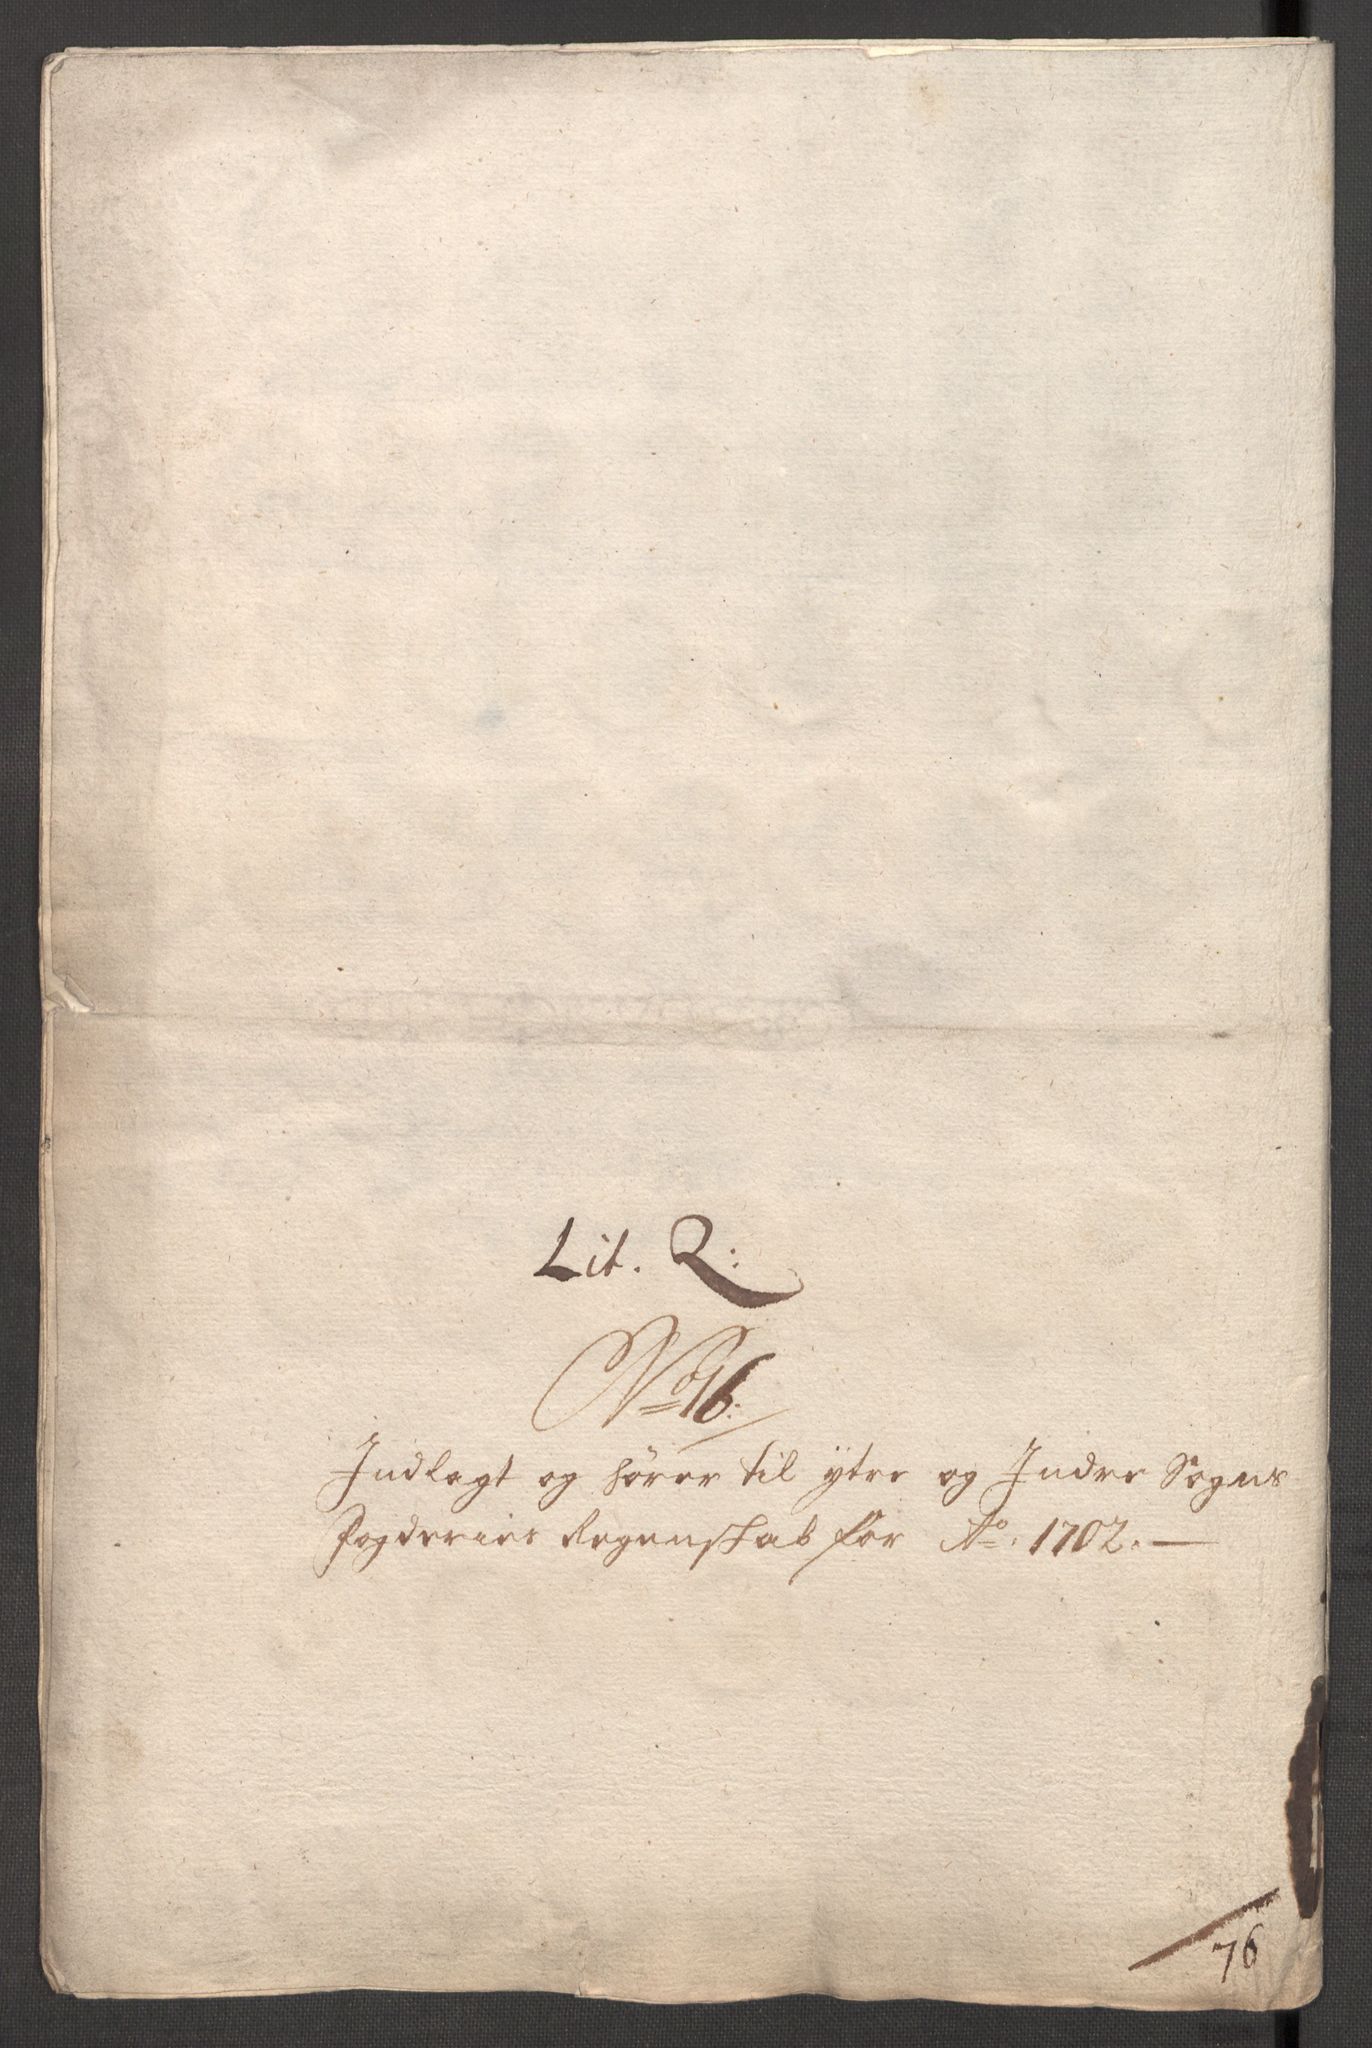 Lit. Q:
No 16:
Indlagt og hører til ytre og Indre Sogns
Fogderies Regenskab for Ao. 1702. —
76